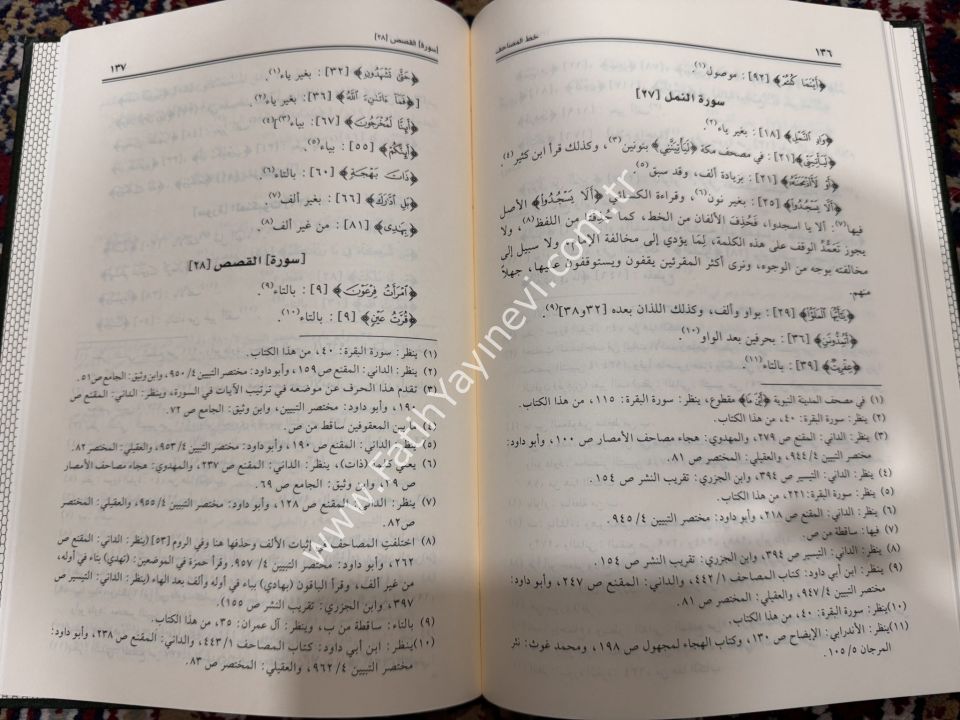 ١٣٦
خط المصاحف
﴿أَيْنَمَا كُنتُمْ﴾ [٩٢]: موصول(١).
سورة النمل [٢٧]
﴿وَادِ النَّمْلِ﴾ [١٨]: بغير ياء(٢).
[٢١]: في مصحف مكة ﴿لَيَأْتِيَنَّنِي﴾ بنونين(٣)، وكذلك قرأ ابن كثير(٤).
﴿أَوْ لَأَاذْبَحَنَّهُ﴾ [٢١]: بزيادة ألف، وقد سبق(٥).
﴿أَلَّا يَسْجُدُوا﴾ [٢٥]: بغير نون(٦)، وقراءة الكسائي ﴿أَلَا يَسْجُدُوا﴾ الأصل
فيها(٧): ألا يا اسجدوا، فَحُذِفَ الألفان من الخط، كما من اللفظ(٨)، ولا
يجوز تَعَمُّدُ الوقف على هذه الكلمة، لِمَا يؤدي إلى مخالفة الإمام، ولا سبيل إلى
مخالفته بوجه من الوجوه، ونرى أكثر المقرئين يقفون ويستوقفون عليها، جهلاً
منهم.
[٢٩]: بواو وألف، وكذلك اللذان بعده [٣٢و٣٨](٩).
﴿أَتُمِدُّونَنِ﴾ [٣٦]: بحرفين بعد الواو(١٠).
﴿عِفْرِيتٌ﴾ [٣٩]: بالتاء(١١).
(١) في مصحف المدينة النبوية ﴿أَيْنَ مَا﴾ مقطوع، ينظر: سورة البقرة: ١١٥، من هذا الكتاب.
(٢) ينظر: سورة البقرة: ٤٠، من هذا الكتاب.
(٣) ينظر: الداني: المقنع ص ٢٧٩، والمهدوي: هجاء مصاحف الأمصار ص ١٠٠، وأبو داود:
مختصر التبيين ٩٤٤/٤، والعقيلي: المختصر ص ٨١.
(٤) ينظر: الداني: التيسير ص ٣٩٤، وابن الجزري: تقريب النشر ص ١٥٤.
(٥) ينظر: سورة البقرة: ٢٢١، من هذا الكتاب.
(٦) ينظر: الداني: المقنع ص ٢١٨، وأبو داود: مختصر التبيين ٩٤٥/٤.
(٧) فيها: ساقطة من ص.
(٨) ينظر: الداني: التيسير ص ٣٩٤، وابن الجزري: تقريب النشر ص ١٥٤.
(٩) ينظر: ابن أبي داود: كتاب المصاحف ٤٤٢/١، والداني: المقنع ص ٢٤٧، وأبو داود:
مختصر التبيين ٩٤٧/٤، والعقيلي: المختصر ص ٨١.
(١٠) ينظر: سورة البقرة: ٤٠، من هذا الكتاب.
(١١) ينظر: الأندرابي: الإيضاح ص ١٣٠، وكتاب الهجاء لمجهول ص ١٩٨، ومحمد غوث: نثر
المرجان ١٠٥/٥.
[سورة] القصص [٢٨]
١٣٧
﴿حَتَّى تَشْهَدُونِ﴾ [٣٢]: بغير ياء(١).
[﴿فَمَا ءَاتَىٰنِۦَ اللَّهُ﴾ [٣٦]: بغير ياء(٢).
﴿أَئِنَّا لَمُخْرَجُونَ﴾ [٦٧]: بياء(٣)](٤)
﴿أَئِنَّكُمْ﴾ [٥٥]: بياء(٥).
﴿ذَاتَ بَهْجَةٍ﴾ [٦٠]: بالتاء(٦).
﴿بَلِ ادَّارَكَ﴾ [٦٦]: بغير ألف(٧).
﴿بِهَٰدِى﴾ [٨١]: من غير ألف(٨).
[سورة] القصص [٢٨]
﴿امْرَأَتُ فِرْعَوْنَ﴾ [٩]: بالتاء(٩).
﴿قُرَّتُ عَيْنٍ﴾ [٩]: بالتاء(١٠).
(١) ينظر: سورة البقرة: ٤٠، من هذا الكتاب.
(٢) ينظر: الداني: المقنع ص ١٥٩، وأبو داود: مختصر التبيين ٩٥٠/٤، وابن وثيق: الجامع ص ٥٦.
(٣) تقدم هذا الحرف عن موضعه في ترتيب الآيات في السورة، وينظر: الداني: المقنع ص
١٩٠، وأبو داود: مختصر التبيين، وابن وثيق: الجامع ص ٧٢.
(٤) ما بين المعقوفين ساقط من ص.
(٥) ينظر: الداني: المقنع ص ١٩٠، وأبو داود: مختصر التبيين ٩٥٣/٤، والعقيلي: المختصر ٨٢.
(٦) يعني كلمة (ذات)، ينظر: الداني: المقنع ص ٢٣٧، والمهدوي: هجاء مصاحف الأمصار
ص ٤٩، وابن وثيق: الجامع ص ٦٩.
(٧) ينظر: الداني: المقنع ص ١٢٨، وأبو داود: مختصر التبيين ٩٥٥/٤، والعقيلي: المختصر
ص ٨٢.
(٨) اختلفت المصاحف في إثبات الألف وحذفها هنا وفي الروم [٥٣] (ينظر: الداني: المقنع ص
٢٦٢، وأبو داود: مختصر التبيين ٤/ ٩٥٧. وقرأ حمزة في الموضعين: (تهدي) بتاء في أوله،
من غير ألف، وقرأ الباقون (بهادي) بباء في أوله وألف بعد الهاء (ينظر: الداني: التيسير ص
٣٩٧، وابن الجزري: تقريب النشر ص ١٥٥).
(٩) بالتاء: ساقطة من ب، وينظر: آل عمران: ٣٥، من هذا الكتاب.
(١٠) ينظر: ابن أبي داود: كتاب المصاحف ٤٤٣/١، والداني: المقنع ص ٢٣٨، وأبو داود:
مختصر التبيين ٩٦٢/٤، والعقيلي: المختصر ص ٨٣.
www.FatihYayinevi.com.tr